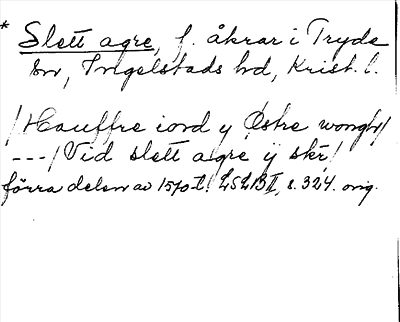 * Slett agre, f. åkrar i Tryde
sn, Ingelstads hd, Krist. l.
/Hauffre iord y Östre wongh/
---/Vid slett agre ÿ skr,/
förra delen av 1570-t. LSLB II, s. 324. orig.